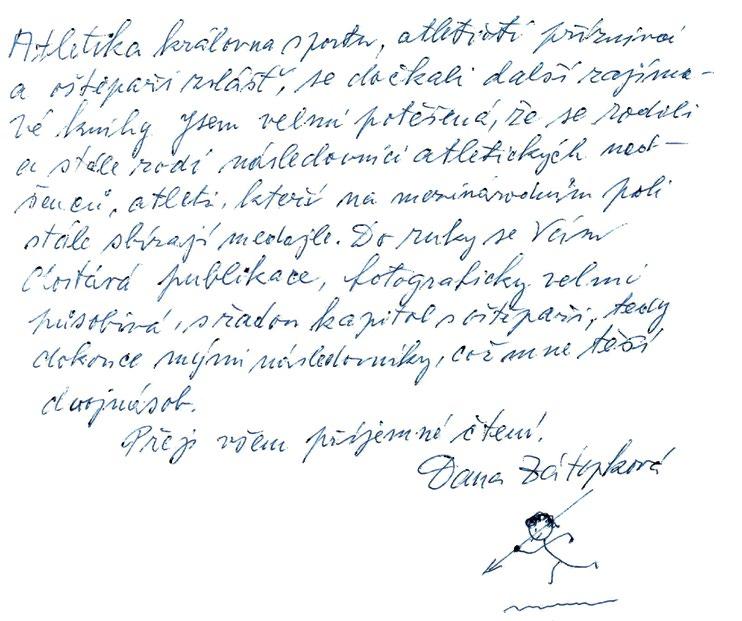 Atletika královna sportu, atletičtí příznivci
a oštěpaři zvlášť, se dočkali další zajíma-
vé knihy Jsem velmi potěšená, že se rodili
a stále rodí následovníci atletických nad-
šenců, atleti, kteří na mezinárodním poli
stále sbírají medajle. Do ruky se Vám
dostává publikace, fotograficky velmi
působivá, s řadou kapitol s oštěpaři, tedy
dokonce mými následovníky, což mne těší
dvojnásob.
Přeji všem příjemné čtení.
Dana Zátopková